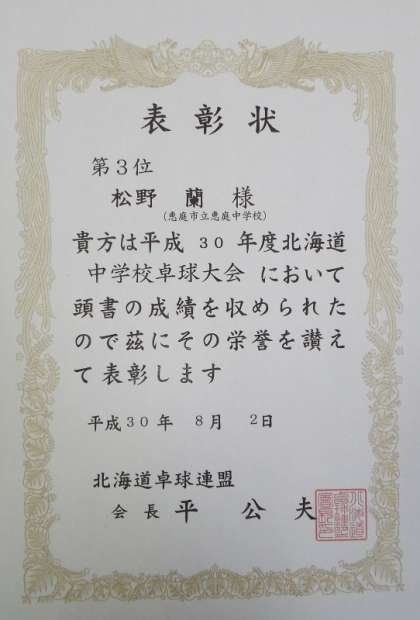 表彰状
第３位
松野 蘭 様
(恵庭市立恵庭中学校)
貴方は平成 30 年度北海道
中学校卓球大会 において
頭書の成績を収められた
ので茲にその栄誉を讃え
て表彰します
平成30年 8月 2日
北海道卓球連盟
会長 平 公夫